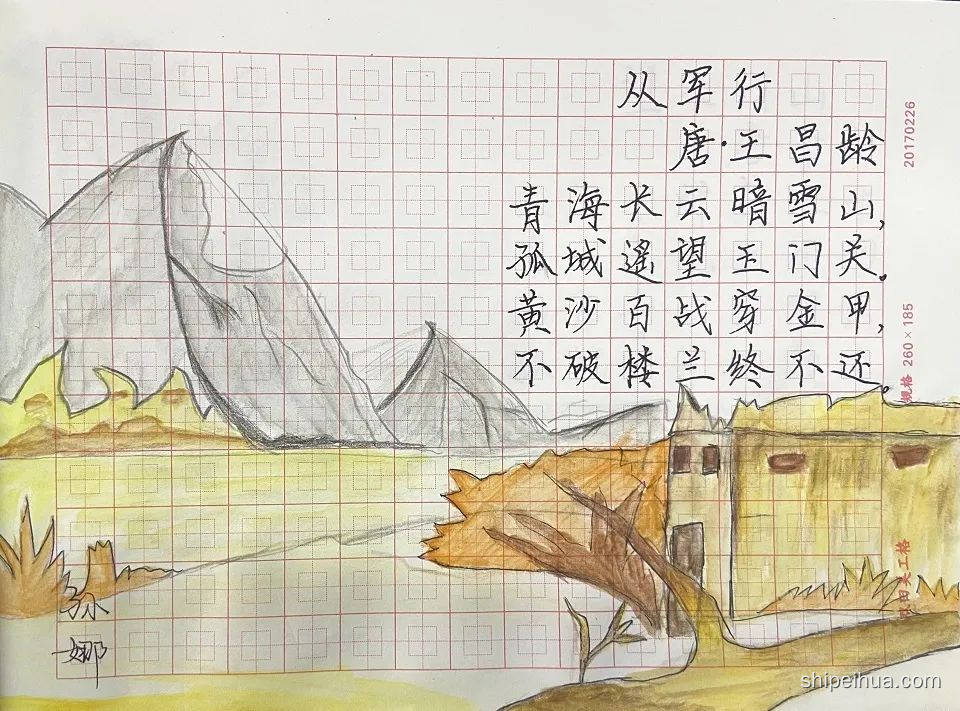 从军行
唐·王昌龄
青海长云暗雪山,
孤城遥望玉门关。
黄沙百战穿金甲,
不破楼兰终不还。
孙娜
20170226
规格 260×185
shipeihua.com